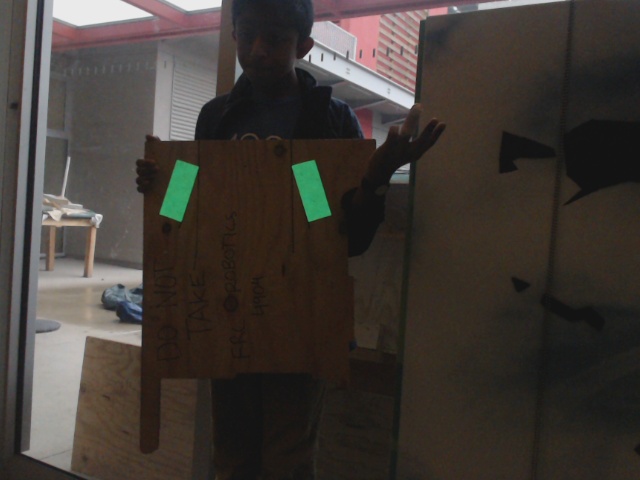 DO NOT
TAKE
FRC ROBOTICS